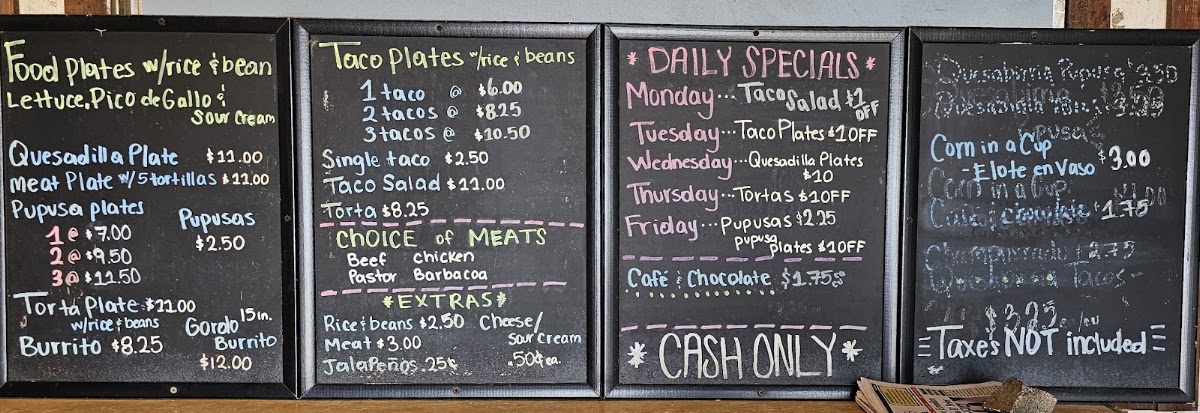 Food Plates w/rice & bean
Lettuce, Pico de Gallo &
Sour Cream
Quesadilla Plate $11.00
Meat Plate w/5 tortillas $11.00
Pupusa plates
1 @ $7.00
2 @ $9.50
3 @ $11.50
Pupusas
$2.50
Torta Plate $11.00
w/rice & beans
Burrito $8.25
Gordo 15in.
Burrito
$12.00
Taco Plates w/rice & beans
1 taco @ $6.00
2 tacos @ $8.25
3 tacos @ $10.50
Single taco $2.50
Taco Salad $11.00
Torta $8.25
CHOICE of MEATS
Beef chicken
Pastor Barbacoa
*EXTRAS*
Rice & beans $2.50
Meat $3.00
Jalapeños .25¢
Cheese/
Sour Cream
.50¢ ea.
* DAILY SPECIALS *
Monday... Taco Salad $1
OFF
Tuesday... Taco Plates $1 OFF
Wednesday... Quesadilla Plates
$10
Thursday... Tortas $1 OFF
Friday... Pupusas $2.25
pupusa plates $1 OFF
Café & Chocolate $1.75
* CASH ONLY *
Quesabirria Pupusa
Corn in a Cup
- Elote en Vaso $3.00
Corn in a Cup
$1.75
Champurrado 2.75
Tacos
Taxes NOT included